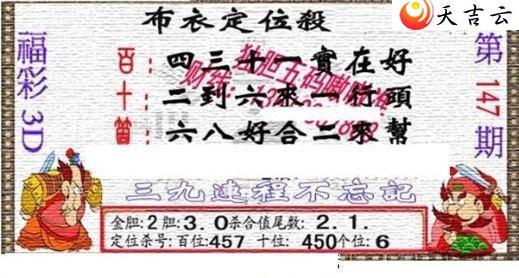 布衣定位殺
天吉云
福彩3D
第147期
百：四三十一實在好
十：二到六來一行頭
箇：六八好合二來幫
独胆五码
三九達程不忘記
金胆:2胆:3.0杀合值尾数:2.1.
定位杀号:百位:457 十位:450个位:6